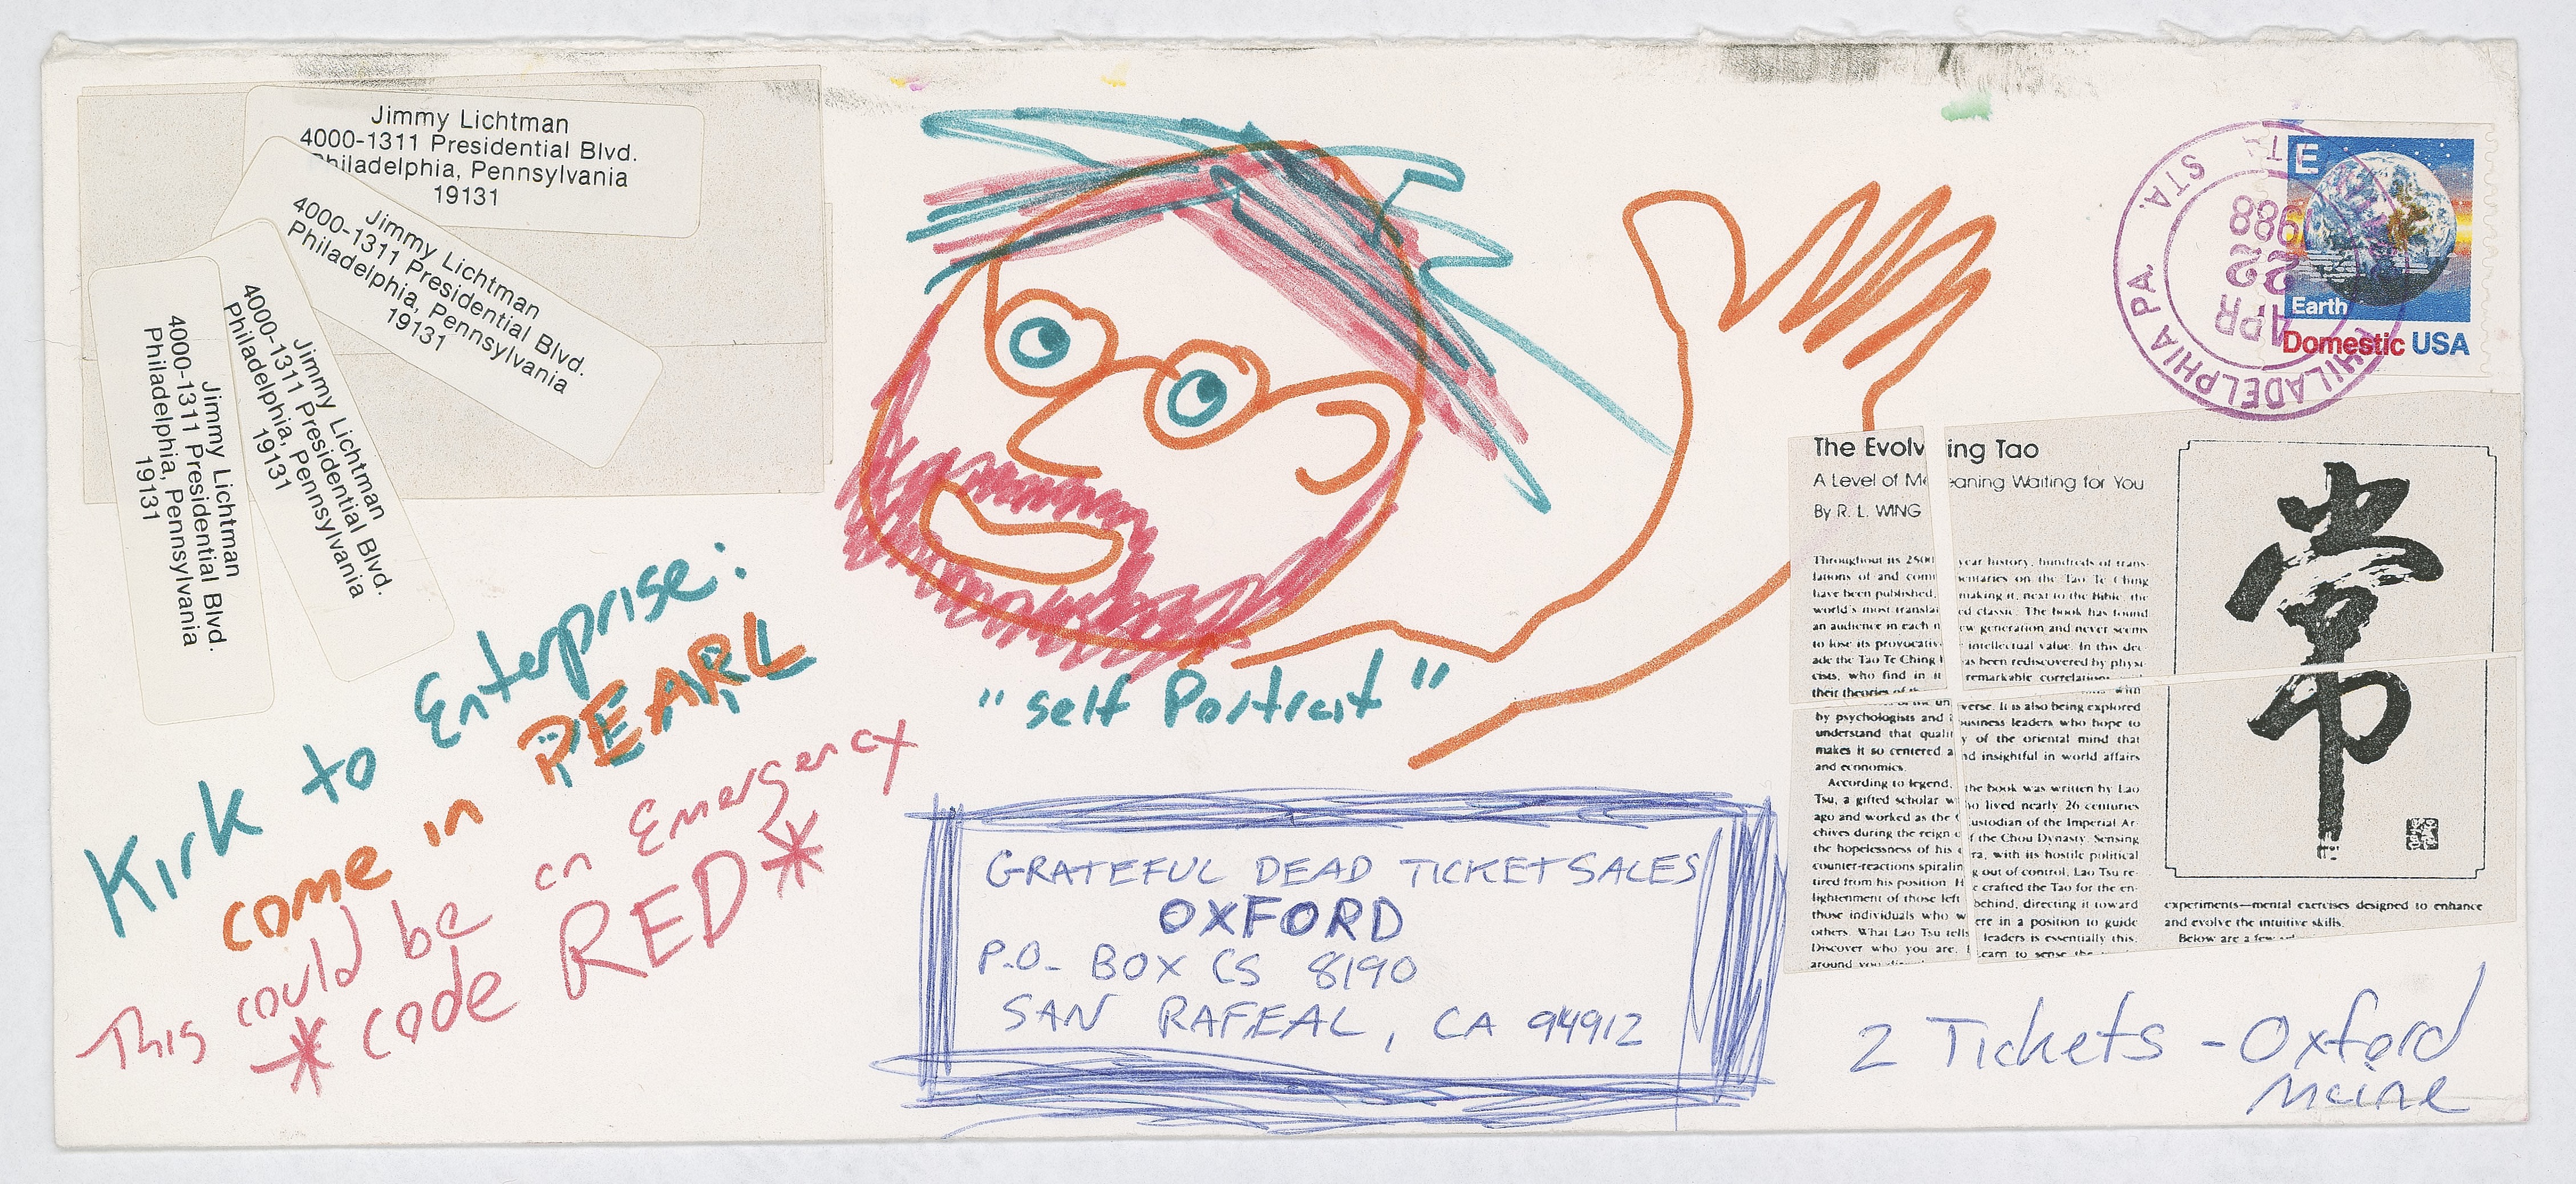 Jimmy Lichtman
4000-1311 Presidential Blvd.
Philadelphia, Pennsylvania
19131
Jimmy Lichtman
4000-1311 Presidential Blvd.
Philadelphia, Pennsylvania
19131
Jimmy Lichtman
4000-1311 Presidential Blvd.
Philadelphia, Pennsylvania
19131
Jimmy Lichtman
4000-1311 Presidential Blvd.
Philadelphia, Pennsylvania
19131
Kirk to Enterprise:
come in PEARL
This could be an Emergency
* code RED *
"self Portrait"
GRATEFUL DEAD TICKET SALES
OXFORD
P.O. BOX CS 8190
SAN RAFEAL, CA 94912
E
Earth
Domestic USA
PHILADELPHIA PA.
STA.
APR
22
1988
The Evolving Tao
A Level of Meaning Waiting for You
By R. L. WING
Throughout its 2500 year history, hundreds of trans-
lations of and commentaries on the Tao Te Ching
have been published, making it, next to the Bible, the
world's most translated classic. The book has found
an audience in each new generation and never seems
to lose its provocative intellectual value. In this dec-
ade the Tao Te Ching has been rediscovered by physi-
cists, who find in it remarkable correlations with
their theories of the un verse. It is also being explored
by psychologists and business leaders who hope to
understand that quality of the oriental mind that
makes it so centered and insightful in world affairs
and economics.
According to legend, the book was written by Lao
Tsu, a gifted scholar who lived nearly 26 centuries
ago and worked as the custodian of the Imperial Ar-
chives during the reign of the Chou Dynasty. Sensing
the hopelessness of his era, with its hostile political
counter-reactions spiraling out of control, Lao Tsu re-
tired from his position. He crafted the Tao for the en-
lightenment of those left behind, directing it toward
those individuals who were in a position to guide
others. What Lao Tsu tells leaders is essentially this:
Discover who you are. Learn to sense the
around you
常
experiments—mental exercises designed to enhance
and evolve the intuitive skills.
Below are a few
2 Tickets - Oxford
Maine